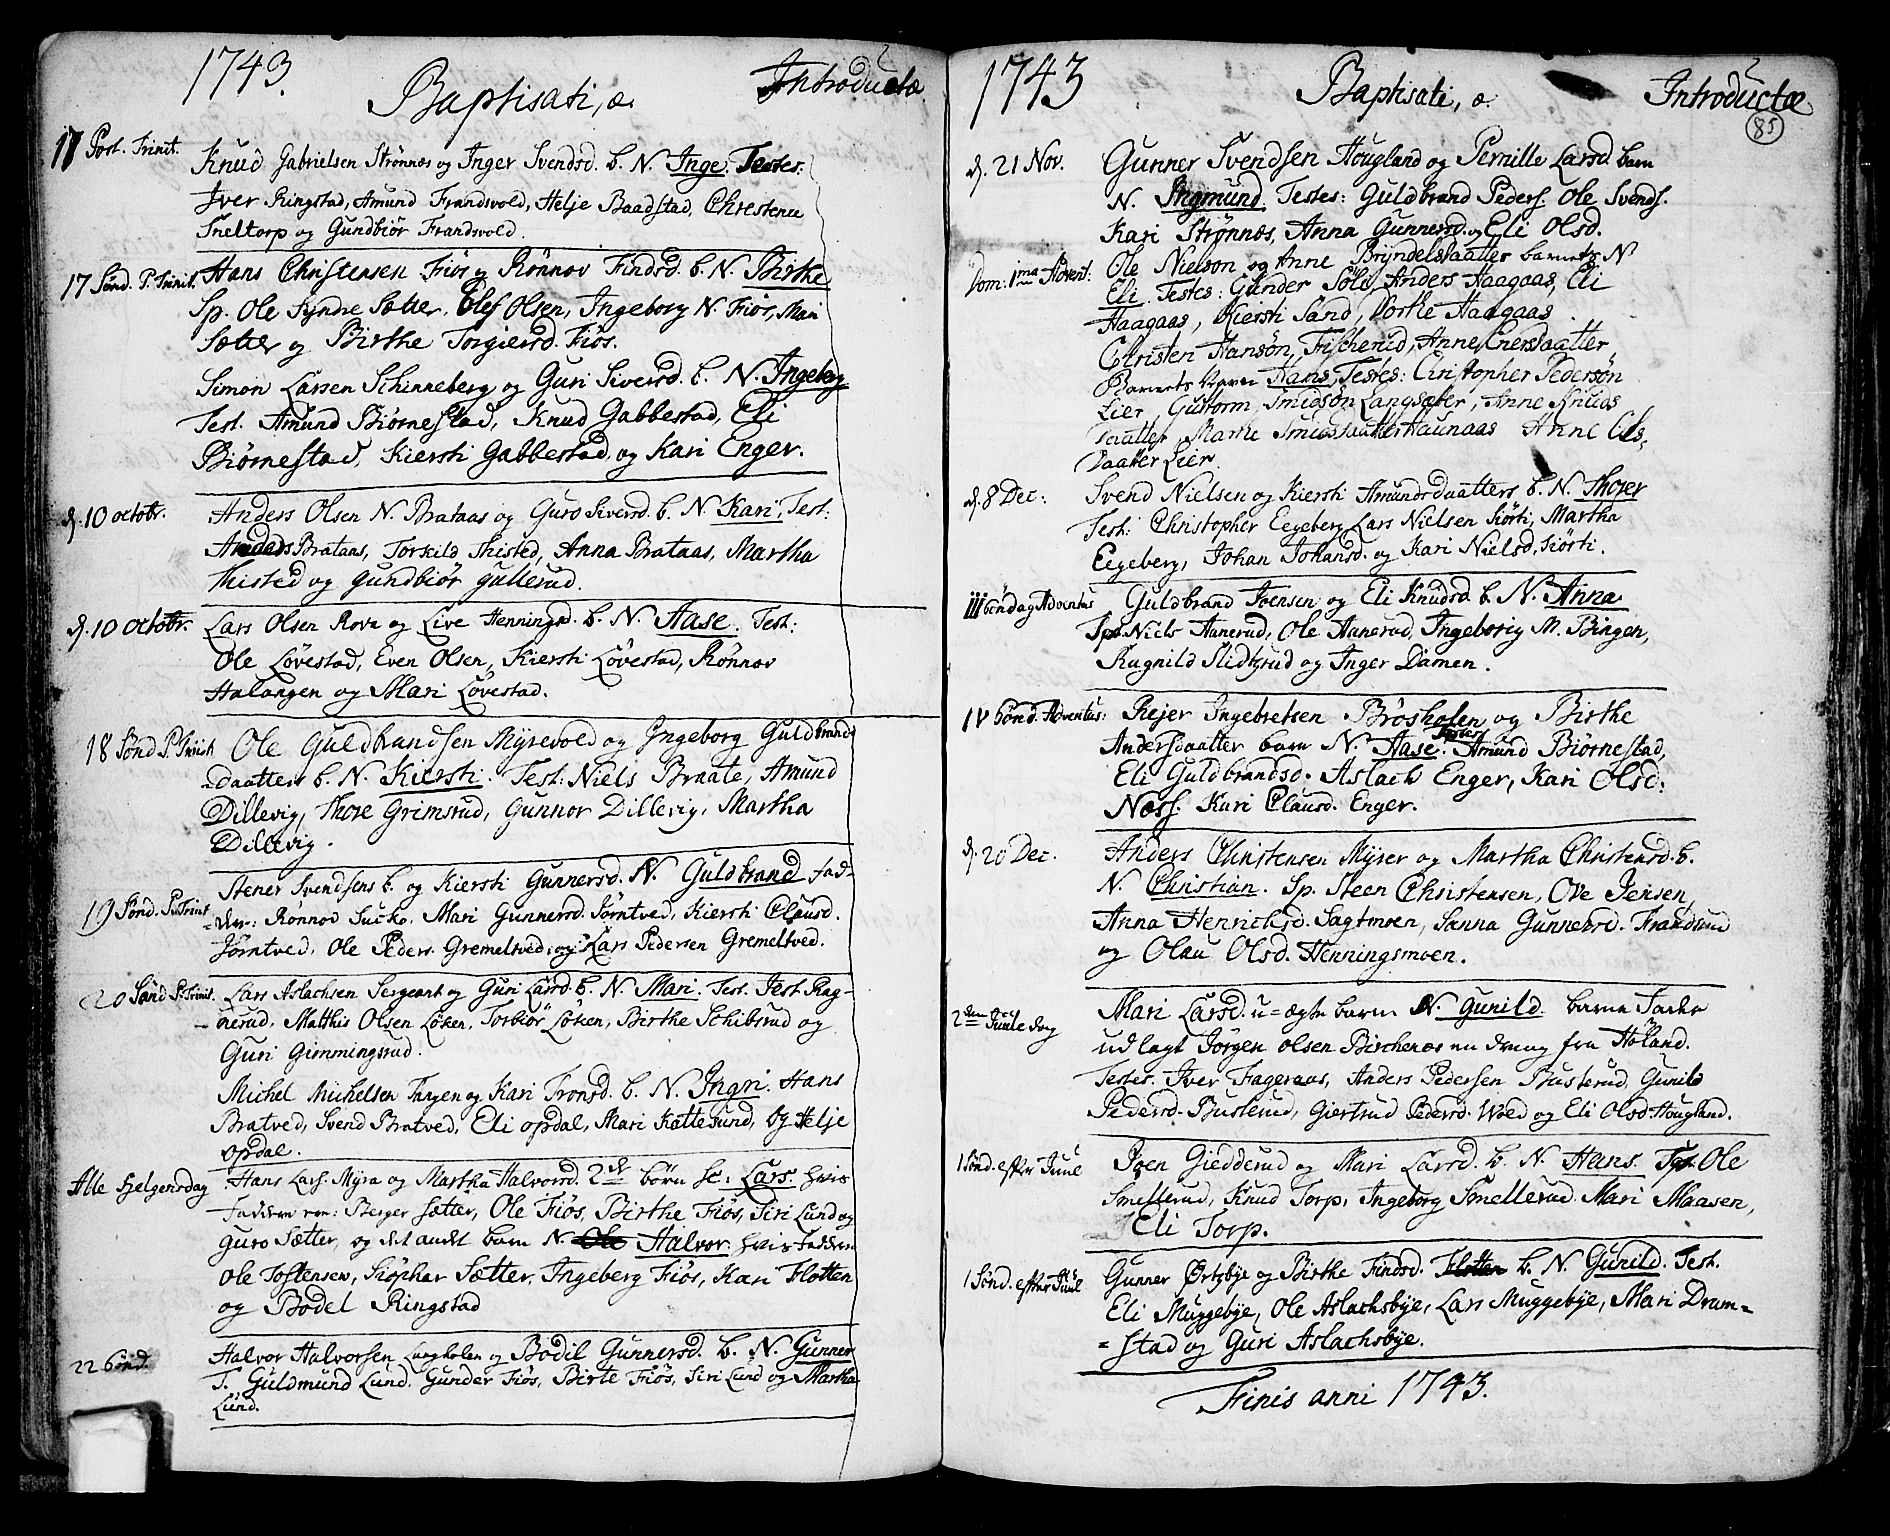 1743.
Baptisati, æ.
Introductæ.
17 Post. Trinit.
Knud Gabrielsen Strønnæs og Inger Svendsd. b. N. Inge. Testes:
Iver Ringstad, Amund Frandsvold, Helje Baadstad, Christence
Sneltorp og Gundbiør Frandsvold.
17 Sønd. P. Trinit.
Hans Christensen Fiøs og Rønnov Findsd. b. N. Birthe
Sp. Ole Syndre Sætter, Olef Olsen, Ingeborg N. Fiøs, Mari
Sætter og Birthe Torgiersd. Fiøs.
Simon Larsen Schinneberg og Guri Siversd. b. N. Ingeborg
Test. Amund Biørnestad, Knud Gabbestad, Eli
Biørnestad, Kiersti Gabbestad og Kari Enger.
d. 10 octobr.
Anders Olsen N. Brataas og Guro Siversd. b. N. Kari, Test:
Anders Brataas, Torkild Thisted, Anna Brataas, Martha
Thisted og Gundbiør Gullerud.
d. 10 octobr.
Lars Olsen Rova og Live Henningsd. b. N. Aase. Test:
Ole Løvestad, Even Olsen, Kiersti Løvestad, Rønnov
Halangen og Mari Løvestad.
18 Sønd P. Trinit
Ole Guldbrandsen Myrevold og Ingeborg Guldbrands
-daatters b. N. Kiersti. Test: Niels Braate, Amund
Dillevig, Thore Grimsrud, Gunnor Dillevig, Martha
Dillevig.
19 Sønd. P. Trinit
Stener Svendsens b. og Kiersti Gunnersd. N. Guldbrand fad-
-dere: Rønnov Sucko, Mari Gunnersd. Jørntved, Kiersti Clausd.
Jørntved, Ole Peders. Gremeltved, og Lars Pedersen Gremeltved.
20 Sønd P. Trinit.
Lars Aslachsen Sergeant og Guri Larsd. b. N. Mari. Test. Jest Rag-
-nerud, Matthis Olsen Løken, Torbiør Løken, Birthe Schibsrud og
Guri Gimmingsrud.
Michel Michelsen Targen og Kari Tronsd. b. N. Ingri. Hans
Bratved, Svend Bratved, Eli opdal, Mari Kattesund, Og Helje
opdal.
Alle Helgensdag
Hans Lars. Myra og Martha Halvorsd. 2de børn sc: Lars. hvis
faddere ere: Berger Sætter, Ole Fiøs, Birthe Fiøs, Siri Lund og
Guro Sætter, og det andet barn N. Ole Halvor: hvis Faddere
Ole Tostensen, Siøphar Sætter, Ingeberg Fiøs, Kari Flotten
og Bodel Ringstad
22 Sønd.
Halvor Halvorsen Langholen og Bodil Gunnersd. b. N. Gunner
T. Guldmund Lund. Gunder Fiøs, Birte Fiøs, Siri Lund og Martha
Lund.
1743
Baptisati, æ.
Introductæ.
85
d. 21 Nov.
Gunner Svendsen Hougland og Pernille Larsd. barn
N. Ingmund. Testes: Guldbrand Peders. Ole Svends.
Kari Strønnæs, Anna Gunnersd. og Eli Olsd.
Dom: 1ma Advent.
Ole Nielsøn og Anne Bryndelsdaatter barnets N
Eli. Testes: Gunder Søle, Anders Haagaas, Eli
Haagaas, Kiersti Sand, Dorthe Haagaas.
Christen Hansøn, Fischerud, Anne Enersdaatter
Barnets Navn Hans, Testes: Christopher Pedersøn
Lier, Guttorm Smidsøn Langsæter, Anne Knuds
Daatter, Marthe Smidsdaatter Haunaas Anne Ols-
Daatter Lier.
d. 8 Dec:
Svend Nielsen og Kiersti Amundsdaatters b. N. Thorer
Test: Christopher Eegeberg, Lars Nielsen Siørti, Martha
Eegeberg, Johan Johansd. og Kari Nielsd, Siørti.
iii Søndag Adventus
Guldbrand Joensen og Eli Knudsd. b. N. Anna
Niels Aanerud, Ole Aanerud, Ingeborig M. Bingen,
Ragnild Slidtzrud og Inger Damen.
IV Sønd. Adventus:
Rejer Ingebretsen Brøsholen og Birthe
Andersdaatter barn N. Aase. Testes Amund Biørnestad,
Eli Guldbrandsd. Aslach Enger, Kari Olsd:
Næss. Kari Clausd. Enger.
d. 20 Dec.
Anders Christensen Myrer og Martha Christensd. b.
N. Christian. Sp. Steen Christensen, Ove Jensen,
Anna Henricksd. Sagtmoen, Sanna Gunnersd. Frandsrud
og Olau Olsd. Henningsmoen.
2den Juule dag
Mari Larsd. u-ægte barn N. Gunild. barne Fader
udlagt Jørgen Olsen Birchenæs en dreng fra Høland.
Testes. Iver Fageraas, Anders Pedersen Busterud, Gunild
Pedersd. Busterud, Giertrud Pedersd. Wold og Eli Olsd Hougland.
1 Sønd. efter Juul
Joen Giedderud og Mari Larsd. b. N. Hans. Tst. Ole
Smellerud, Knud Torp, Ingeborg Smellerud. Mari Maasen,
Eli Torp.
1 Sønd. efter Juul
Gunner Ørtzbye og Birthe Findsd. Flotten b. N. Gunild. Test.
Eli Muggebye, Ole Aslachsbye, Lars Muggebye, Mari Dram-
-stad og Guri Aslachsbye.
Finis anni 1743.